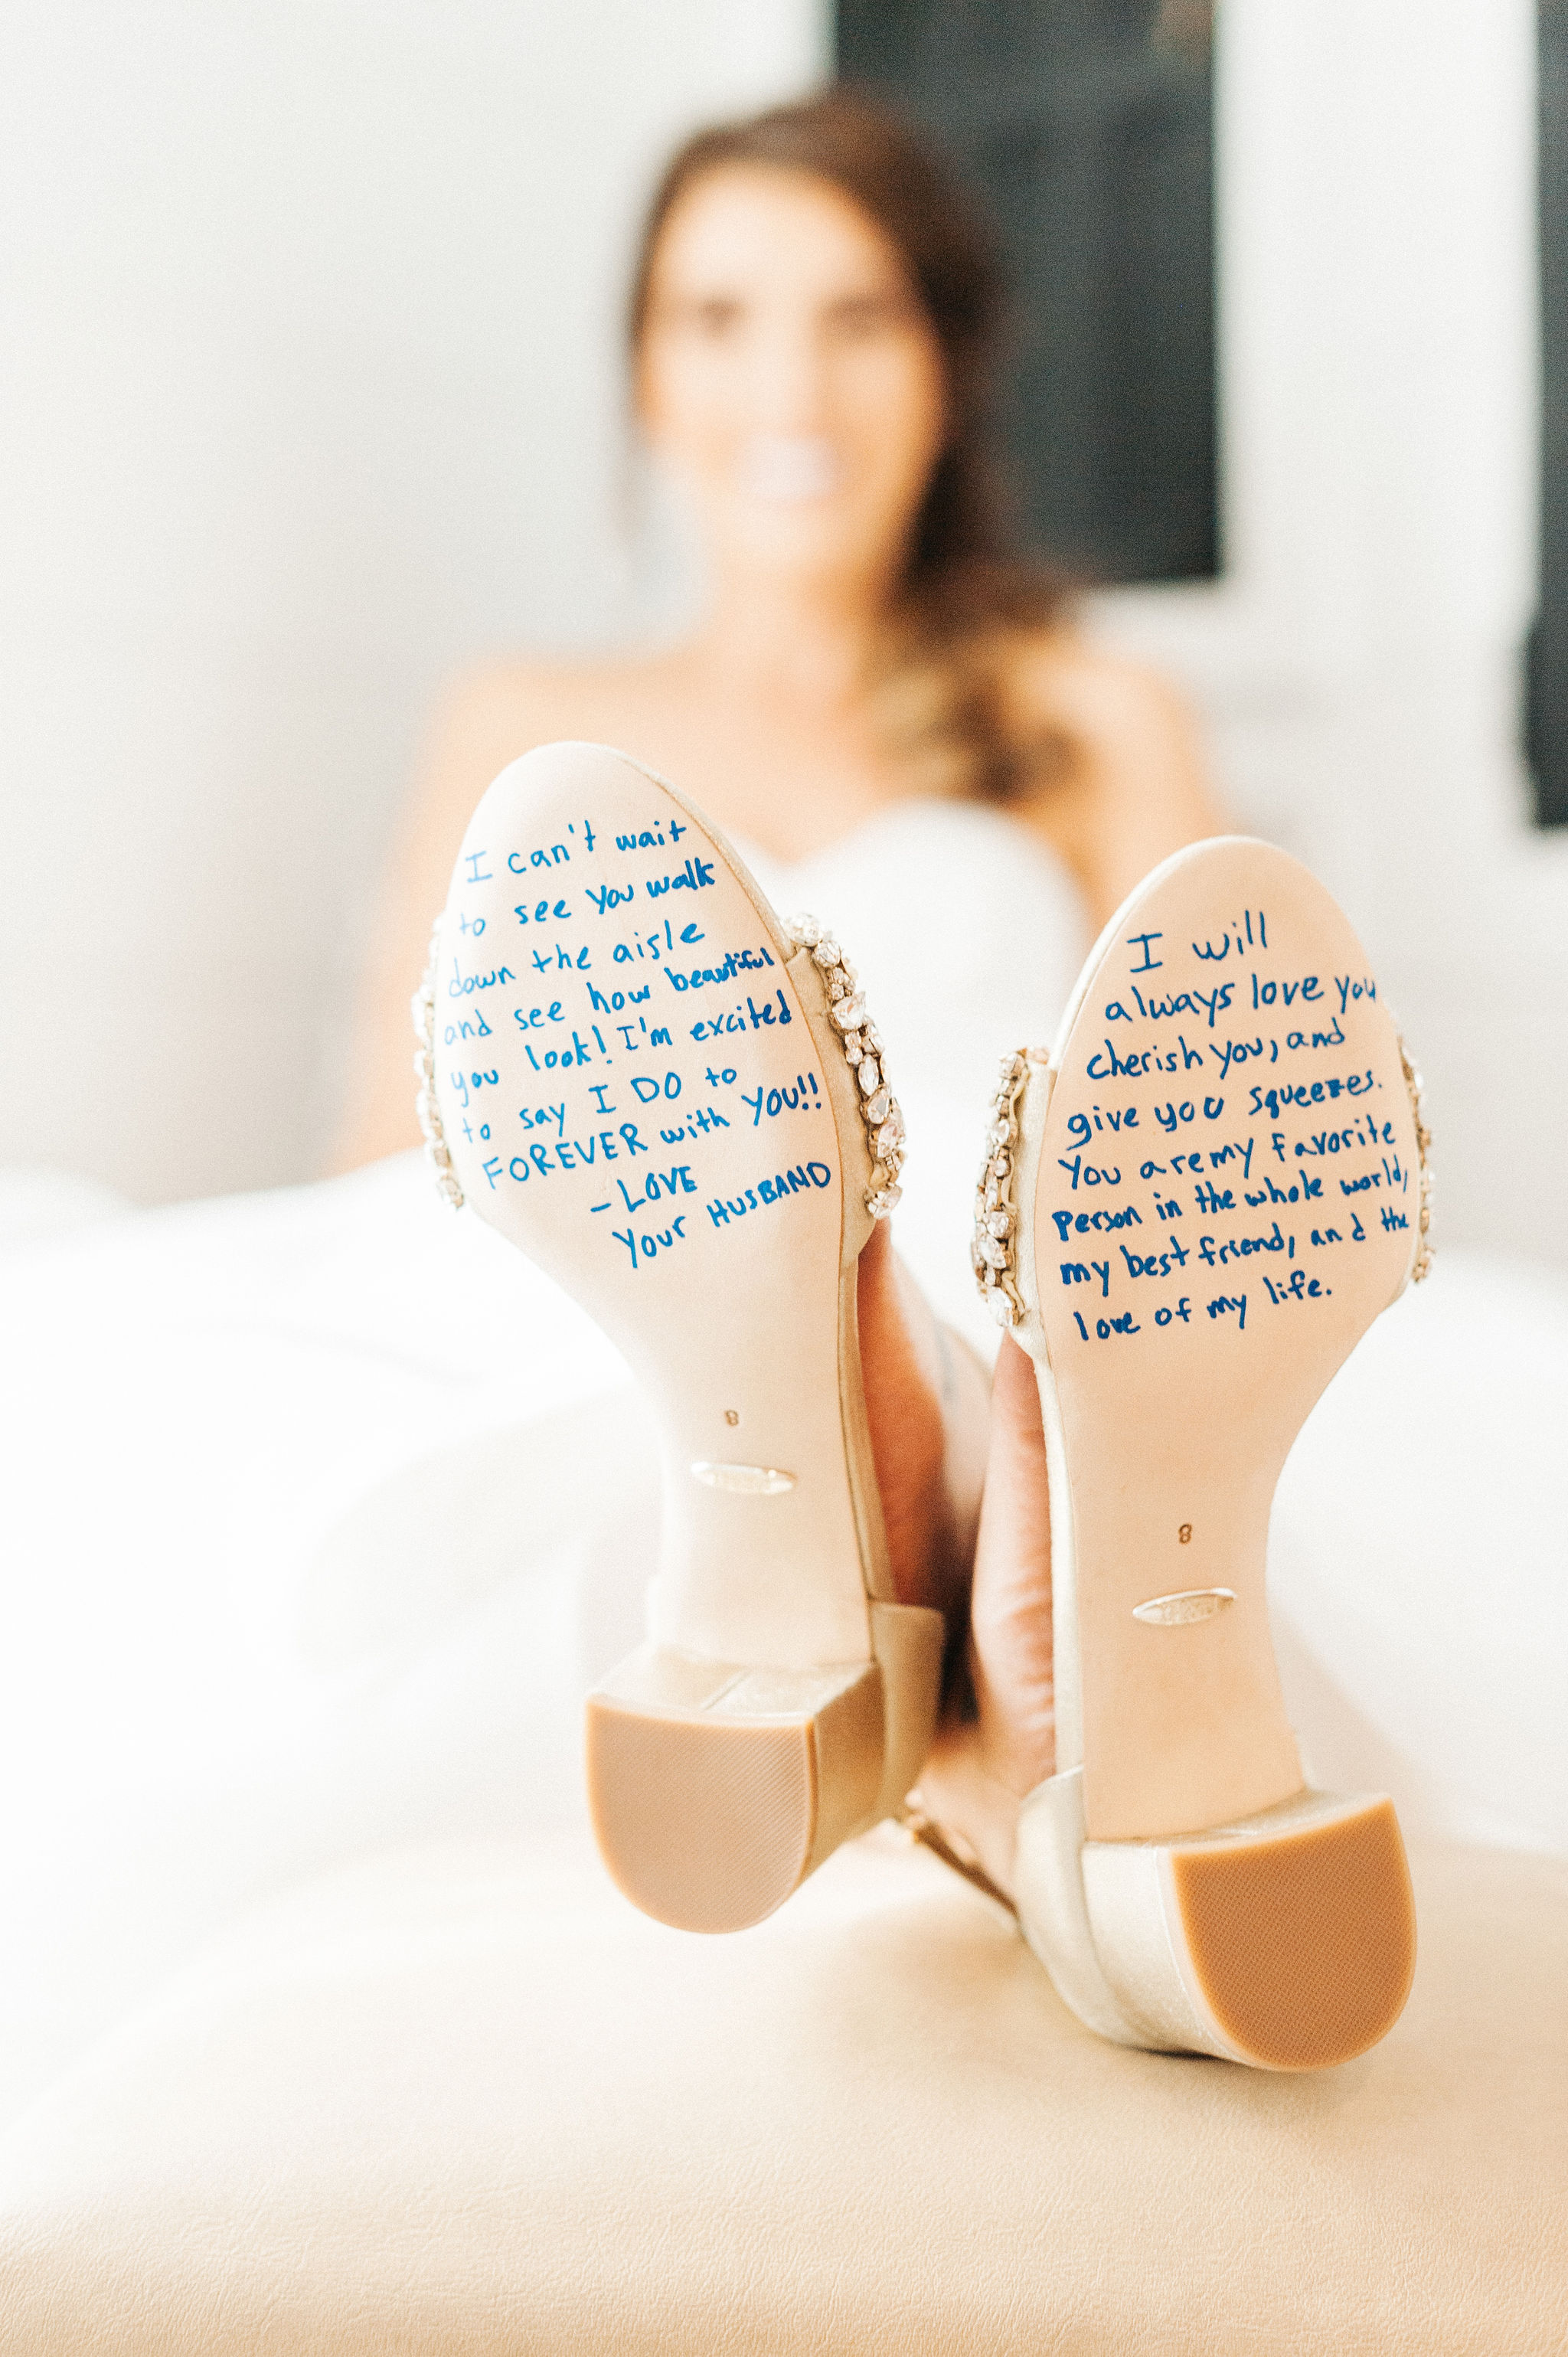 I can't wait
to see you walk
down the aisle
and see how beautiful
you look! I'm excited
to say I DO to
FOREVER with YOU!!
- LOVE
Your HUSBAND
8
I will
always love you
cherish you, and
give you squeezes.
You are my favorite
Person in the whole world,
my best friend, and the
love of my life.
8